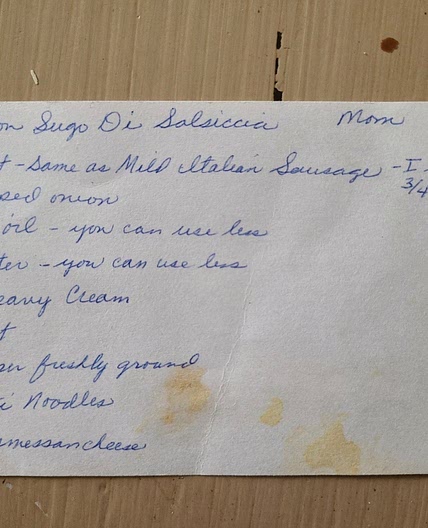 on Sugo Di Salsiccia Mom
t - Same as Mild Italian Sausage - I
3/4
ped onion
oil - you can use less
ter - you can use less
eavy Cream
t
er freshly ground
i Noodles
rmessancheese